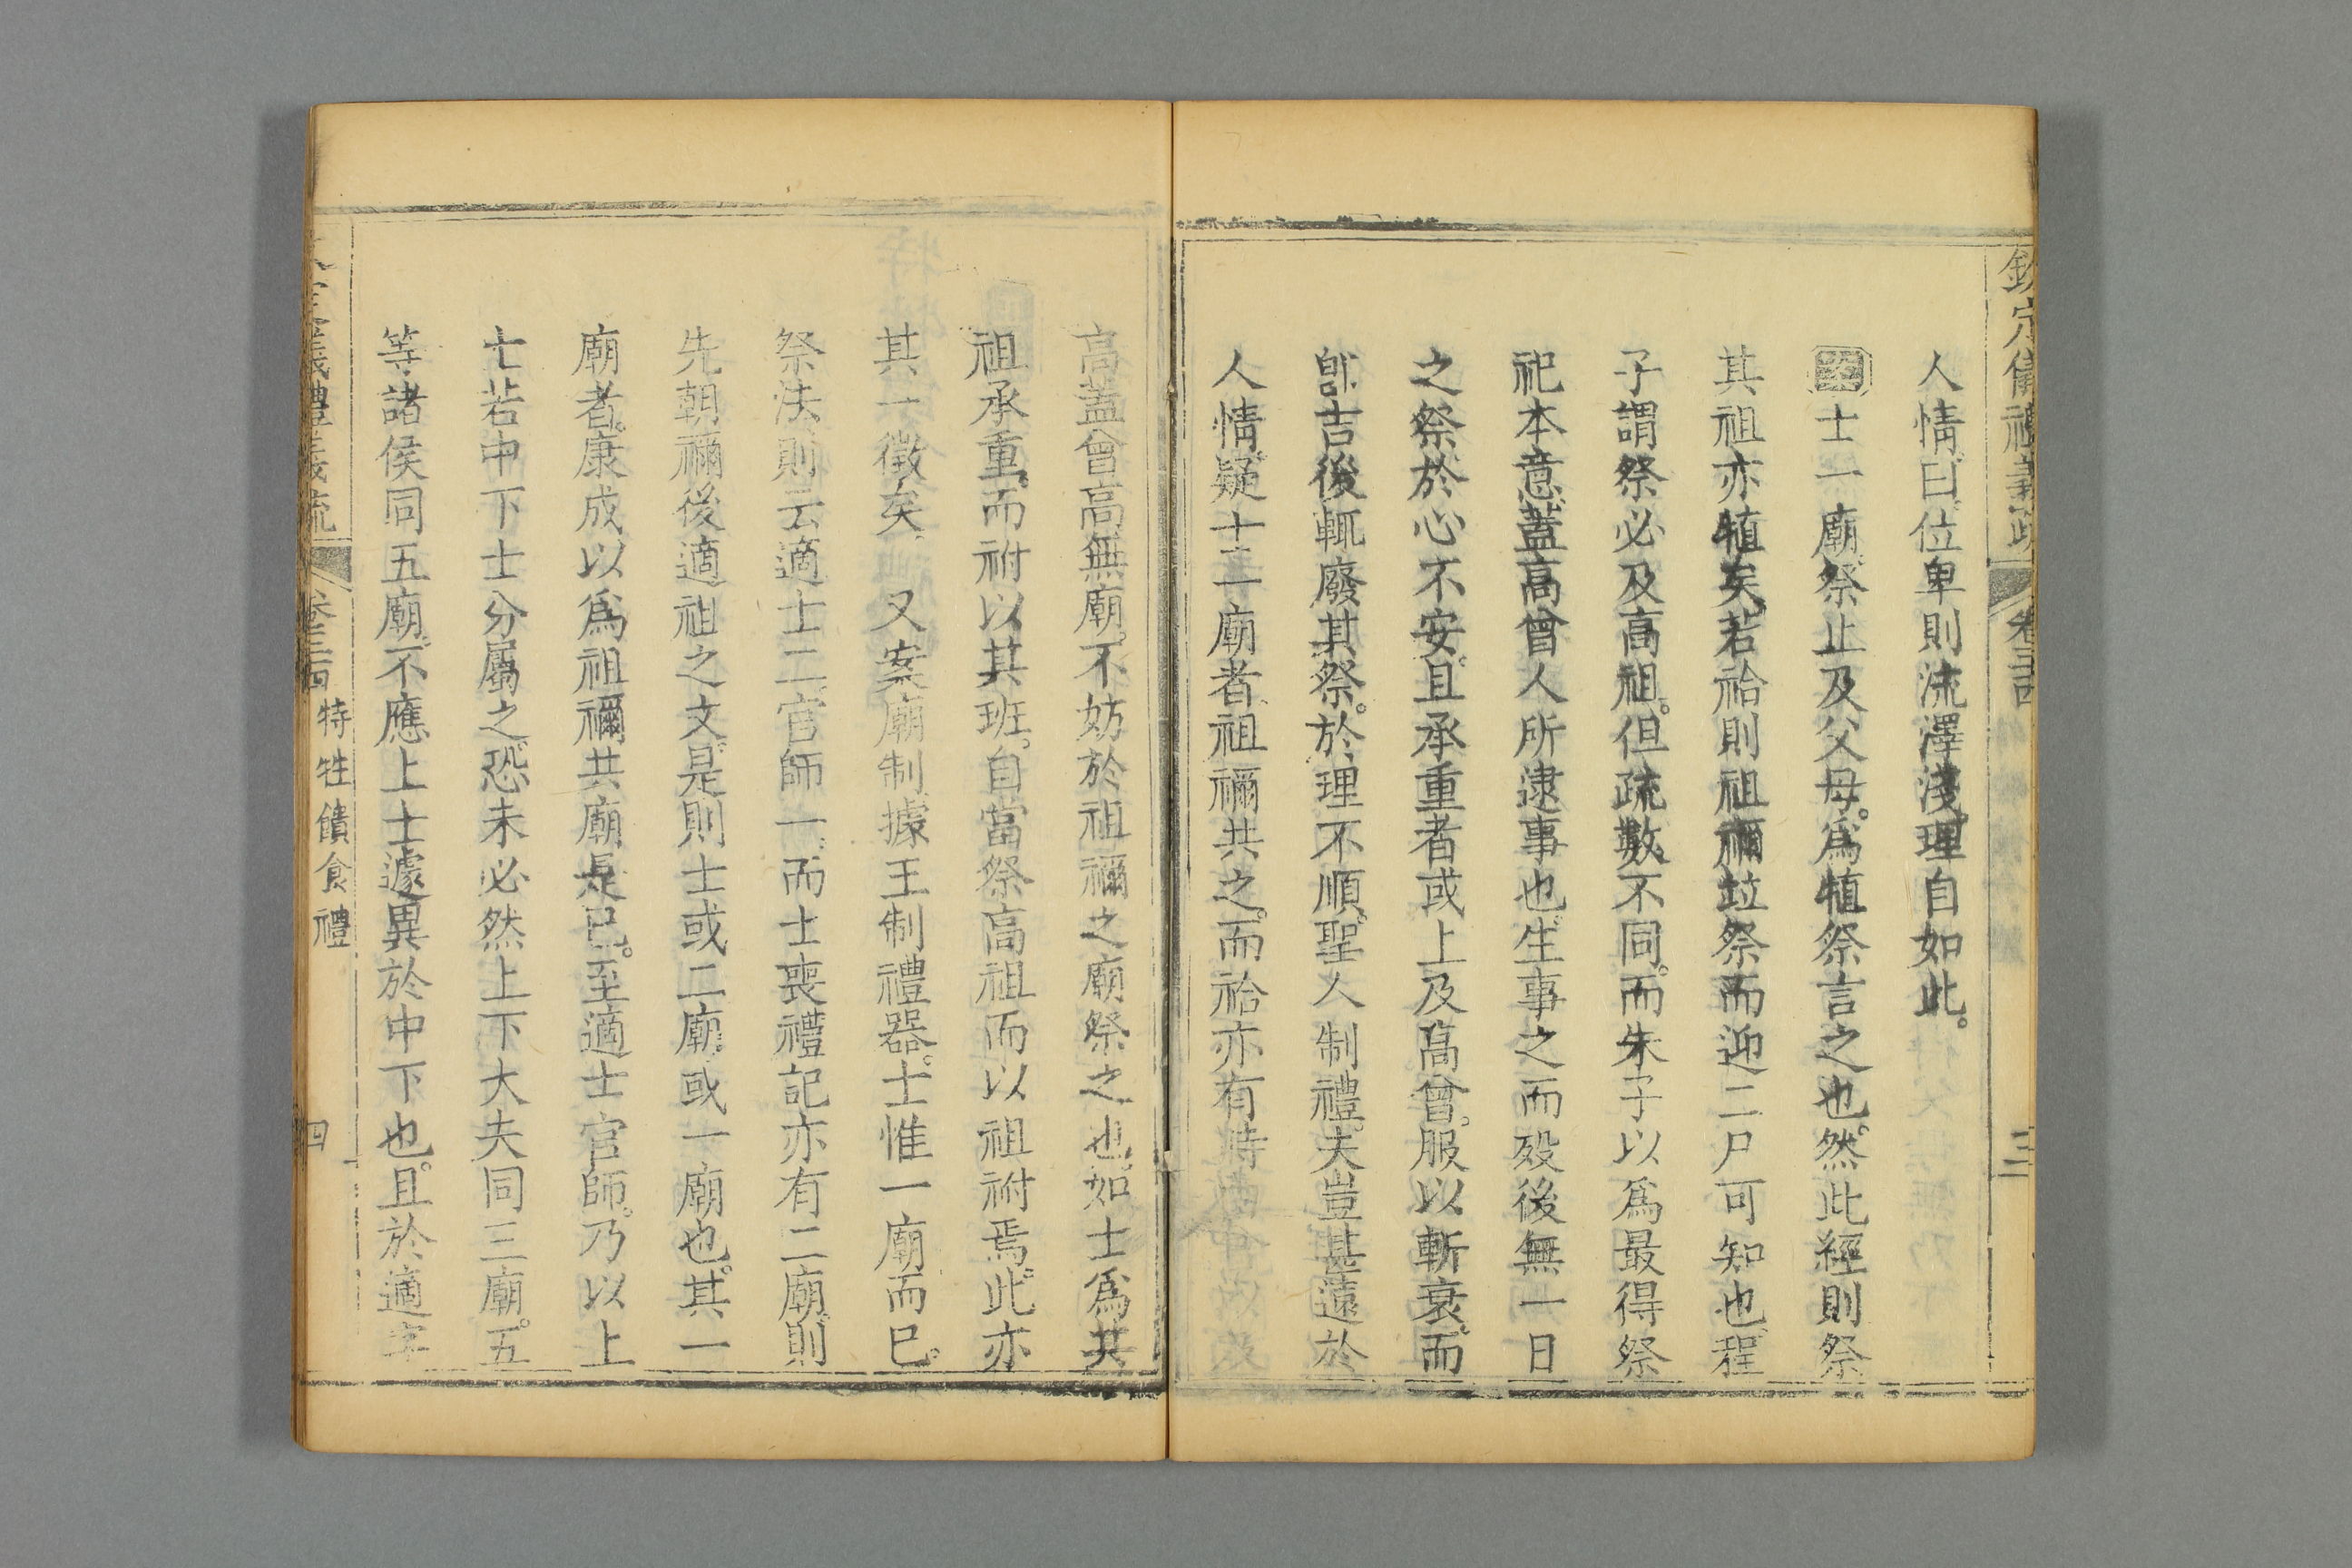 欽定儀禮義疏 卷三十四 三
人情曰位卑則流澤淺理自如此。
案士一廟祭止及父母。爲犆祭言之也。然此經則祭
其祖亦犆矣若祫則祖禰竝祭而迎二尸可知也程
子謂祭必及高祖。但疏數不同。而朱子以爲最得祭
祀本意。蓋高曾人所逮事也。生事之而殁後無一日
之祭於心不安。且承重者或上及高曾。服以斬衰。而
卽吉後輒廢其祭。於理不順。聖人制禮。夫豈甚遠於
人情。疑士一廟者祖禰共之。而祫亦有時
高蓋曾高無廟。不妨於祖禰之廟祭之也。如士爲其
祖承重。而祔以其班。自當祭高祖而以祖祔焉。此亦
其一徵矣 又案廟制據王制禮器。士惟一廟而已。
祭法則云適士二官師一。而士喪禮記亦有二廟則
先朝禰後適祖之文。是則士或二廟或一廟也。其一
廟者。康成以爲祖禰共廟是已。至適士官師。乃以上
士若中下士分屬之。恐未必然上下大夫同三廟。五
等諸侯同五廟。不應上士遽異於中下也。且於適字
欽定儀禮義疏 卷三十四 特牲饋食禮 四